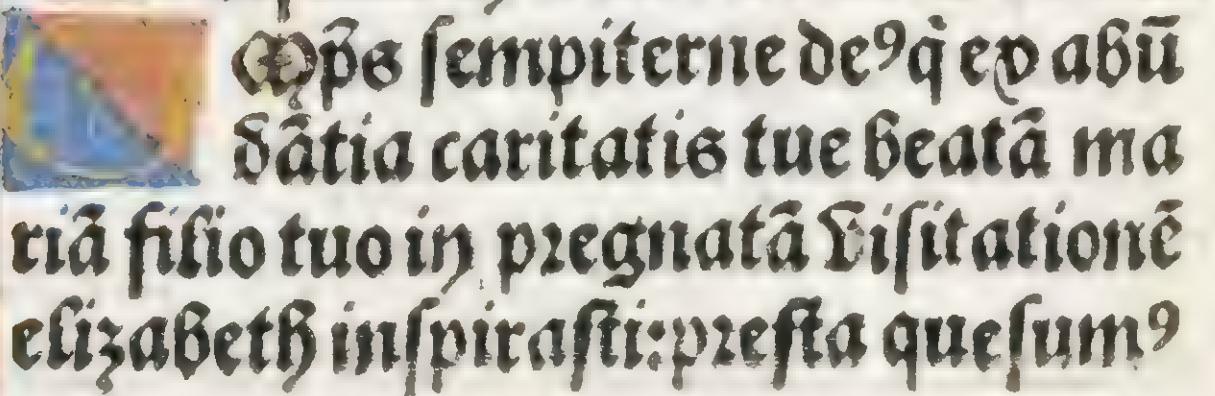 Omp̄s ſempiterne deꝰ q̄ ex abū
dātia caritatis tue beatā ma
riā filio tuo in pregnatā viſitationē
elizabeth inſpiraſti: preſta queſumꝰ